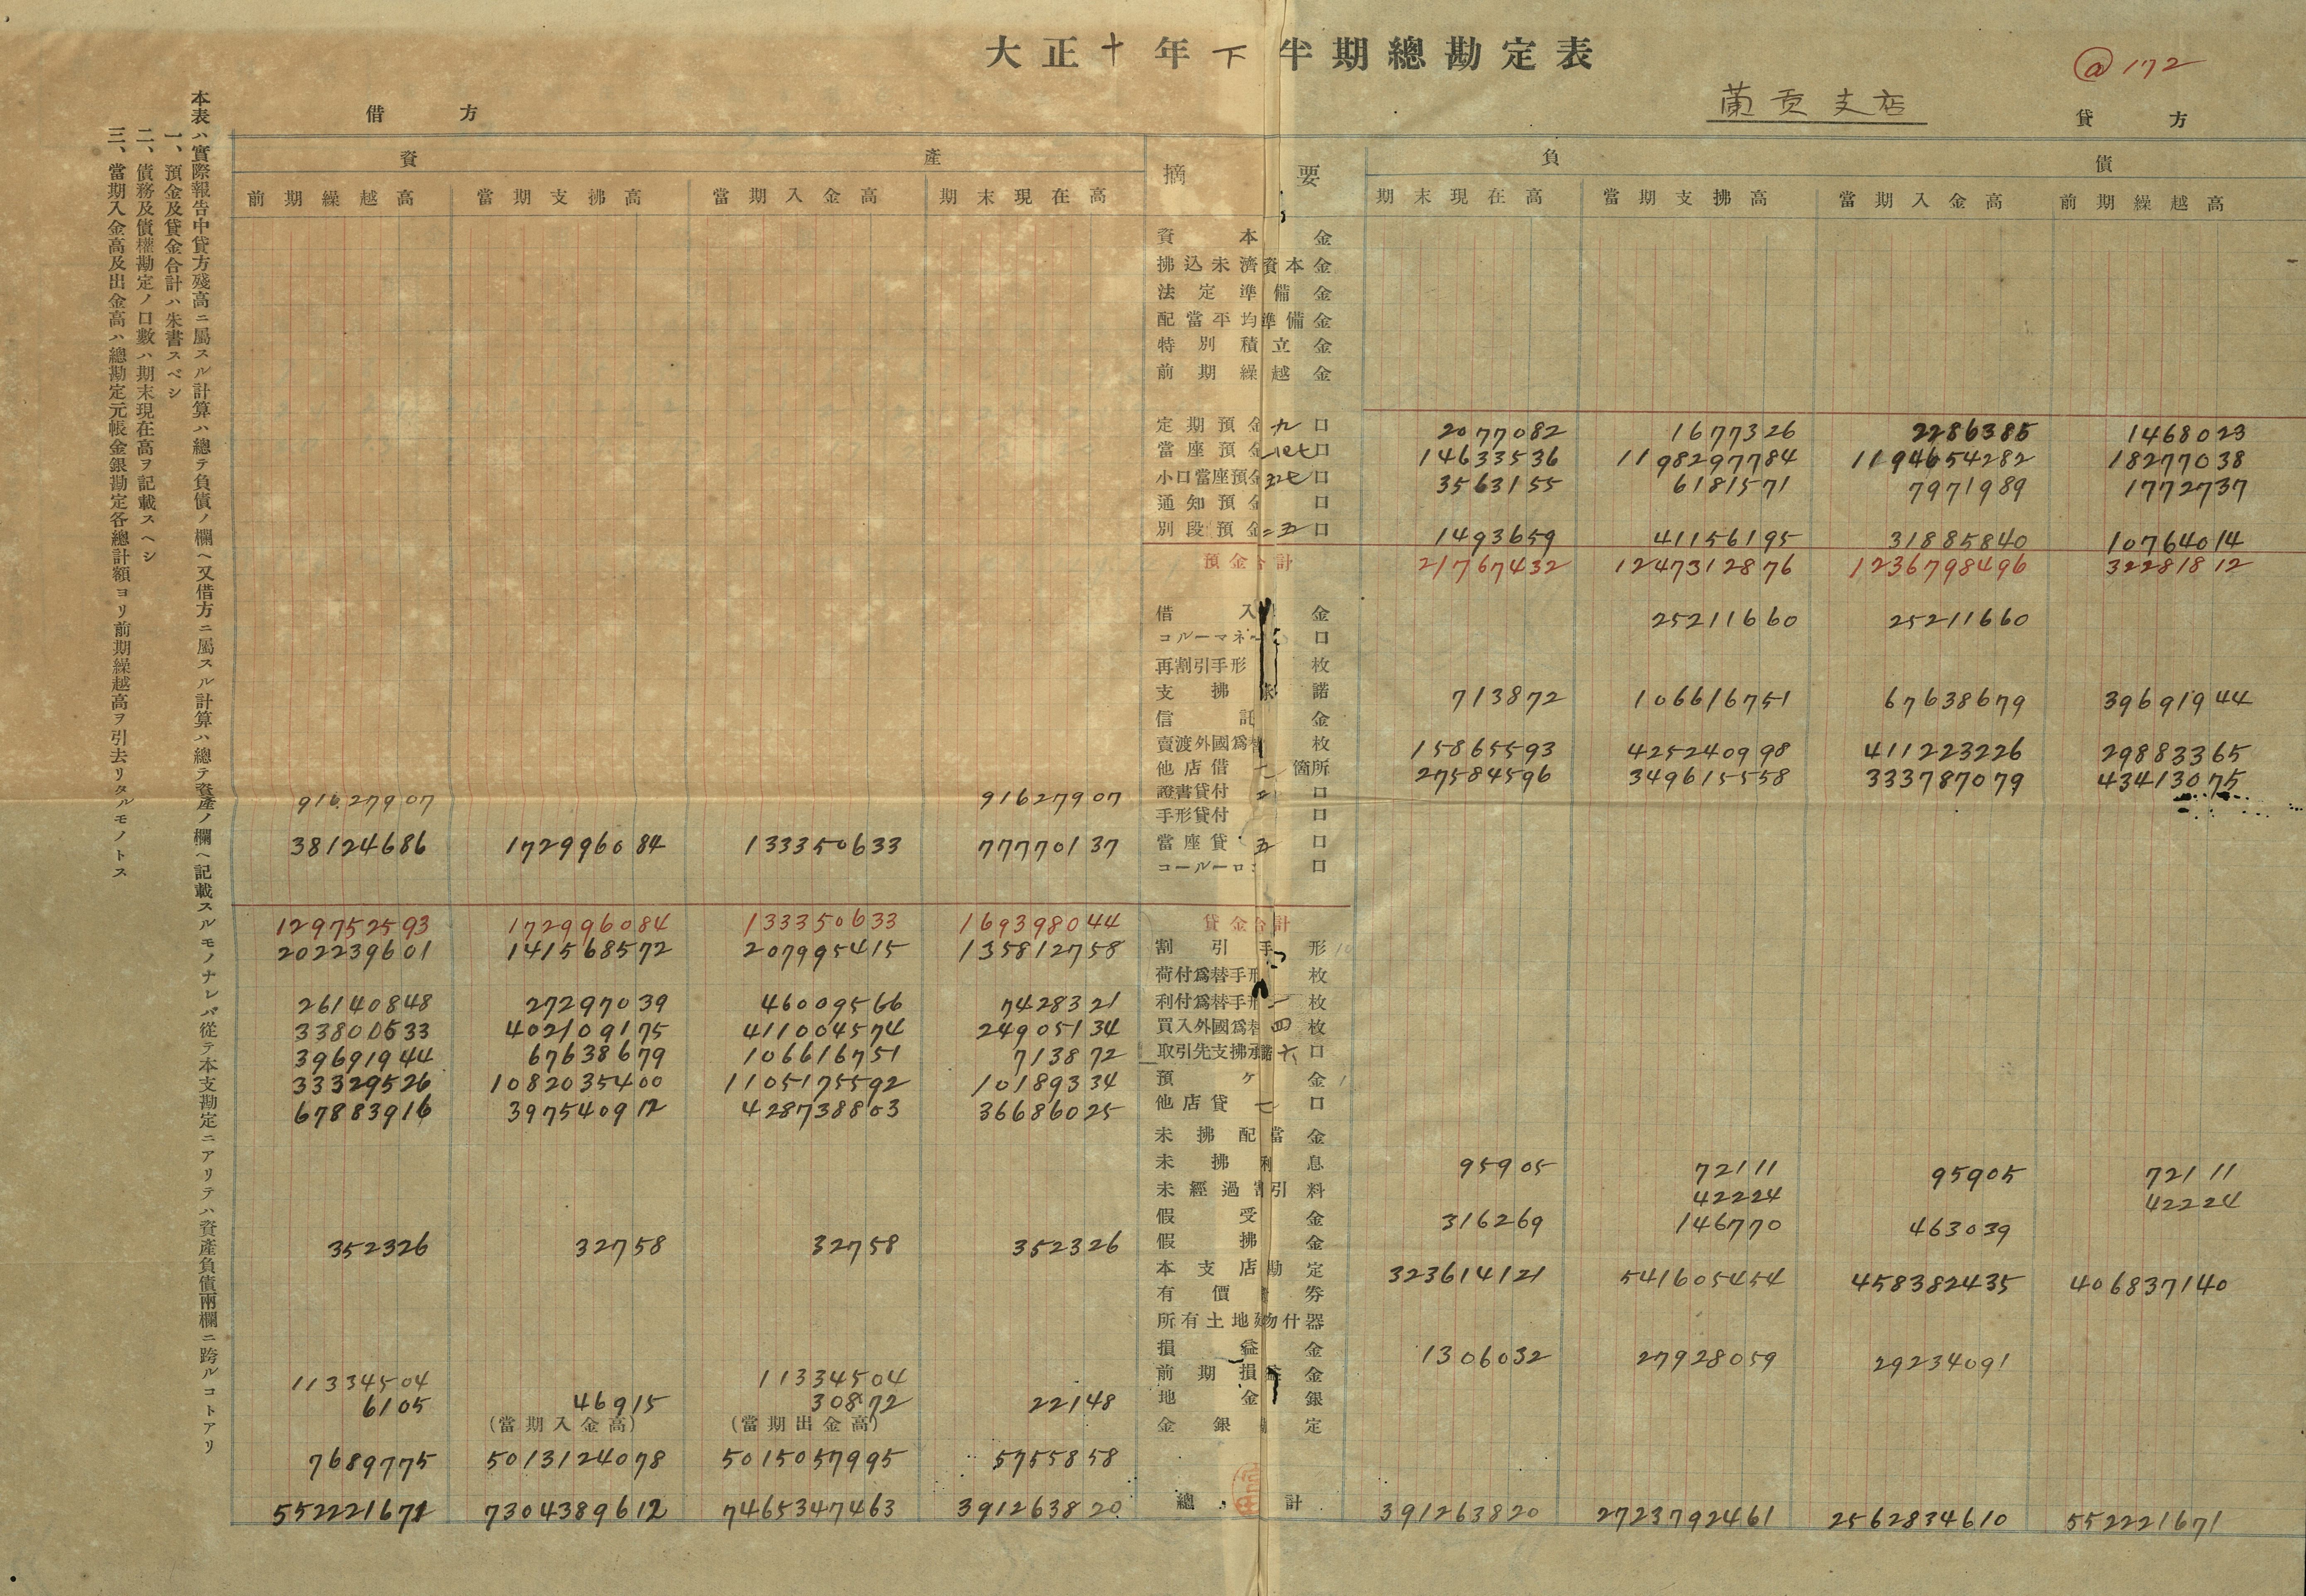 大正十年下半期總勘定表
@172
蘭貢支店
借方
貸方
資產
摘要
負債
前期繰越高 當期支拂高 當期入金高 期末現在高 期末現在高 當期支拂高 當期入金高 前期繰越高
資本金
拂込未濟資本金
法定準備金
配當平均準備金
特別積立金
前期繰越金
定期預金 九口 2077082 1677326 2286385 1468023
當座預金 口 14633536 1198297784 1194654282 18277038
小口當座預金 口 3563155 6181571 7971989 1772737
通知預金 口
別段預金 二五口 1493659 41156195 31885840 10764014
預金合計 21767432 1247312876 1236798496 32281812
借入金 25211660 25211660
コルーマネー 口
再割引手形 枚
支拂承諾 713872 106616751 67638679 39691944
信託金
賣渡外國爲替 枚 15865593 425240998 411223226 29883365
他店借 箇所 27584596 349615558 333787079 43413075
91627907 91627907 證書貸付 口
手形貸付 口
38124686 172996084 133350633 77770137 當座貸 五口
コールーロ 口
129752593 172996084 133350633 169398044 貸金合計
202239601 141568572 207995415 135812758 割引手形
荷付爲替手形 枚
26140848 27297039 46009566 7428321 利付爲替手形 一枚
33800533 402109175 411004574 24905134 買入外國爲替 四枚
39691944 67638679 106616751 713872 取引先支拂承諾 六口
33329526 1082035400 1105175592 10189334 預ケ金
67883916 397540912 428738803 36686025 他店貸 口
未拂配當金
未拂利息 95905 72111 95905 72111
未經過割引料 42224 42224
假受金 316269 146770 463039
352326 32758 32758 352326 假拂金
本支店勘定 323614121 541605454 458382435 406837140
有價證券
所有土地建物什器
損益金 1306032 27928059 29234091
11334504 11334504 前期損益金
6105 46915 30872 22148 地金銀
(當期入金高) (當期出金高) 金銀勘定
7689775 5013124078 5015057995 5755858
552221671 7304389612 7465347463 391263820 總計 391263820 2723792461 2562834610 552221671
本表ハ實際報告中貸方殘高ニ屬スル計算ハ總テ負債ノ欄ヘ又借方ニ屬スル計算ハ總テ資產ノ欄ヘ記載スルモノナレバ從テ本支勘定ニアリテハ資產負債兩欄ニ跨ルコトアリ
一、預金及貸金合計ハ朱書スベシ
二、債務及債權勘定ノ口數ハ期末現在高ヲ記載スヘシ
三、當期入金高及出金高ハ總勘定元帳金銀勘定各總計額ヨリ前期繰越高ヲ引去リタルモノトス